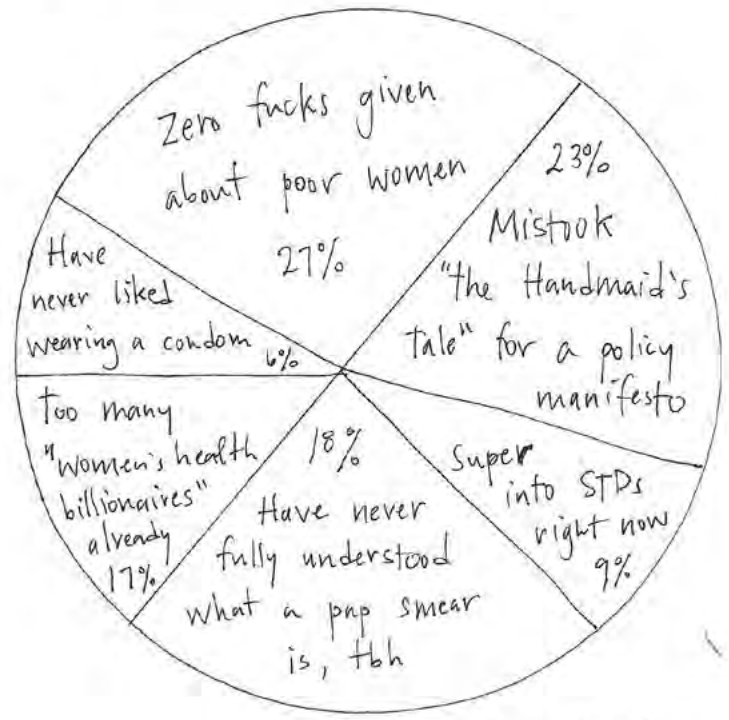 Zero fucks given
about poor women
27%
23%
Mistook
"the Handmaid's
tale" for a policy
manifesto
Super
into STDs
right now
9%
18%
Have never
fully understood
what a pap smear
is, tbh
Too many
"women's health
billionaires"
already
17%
Have
never liked
wearing a condom
6%